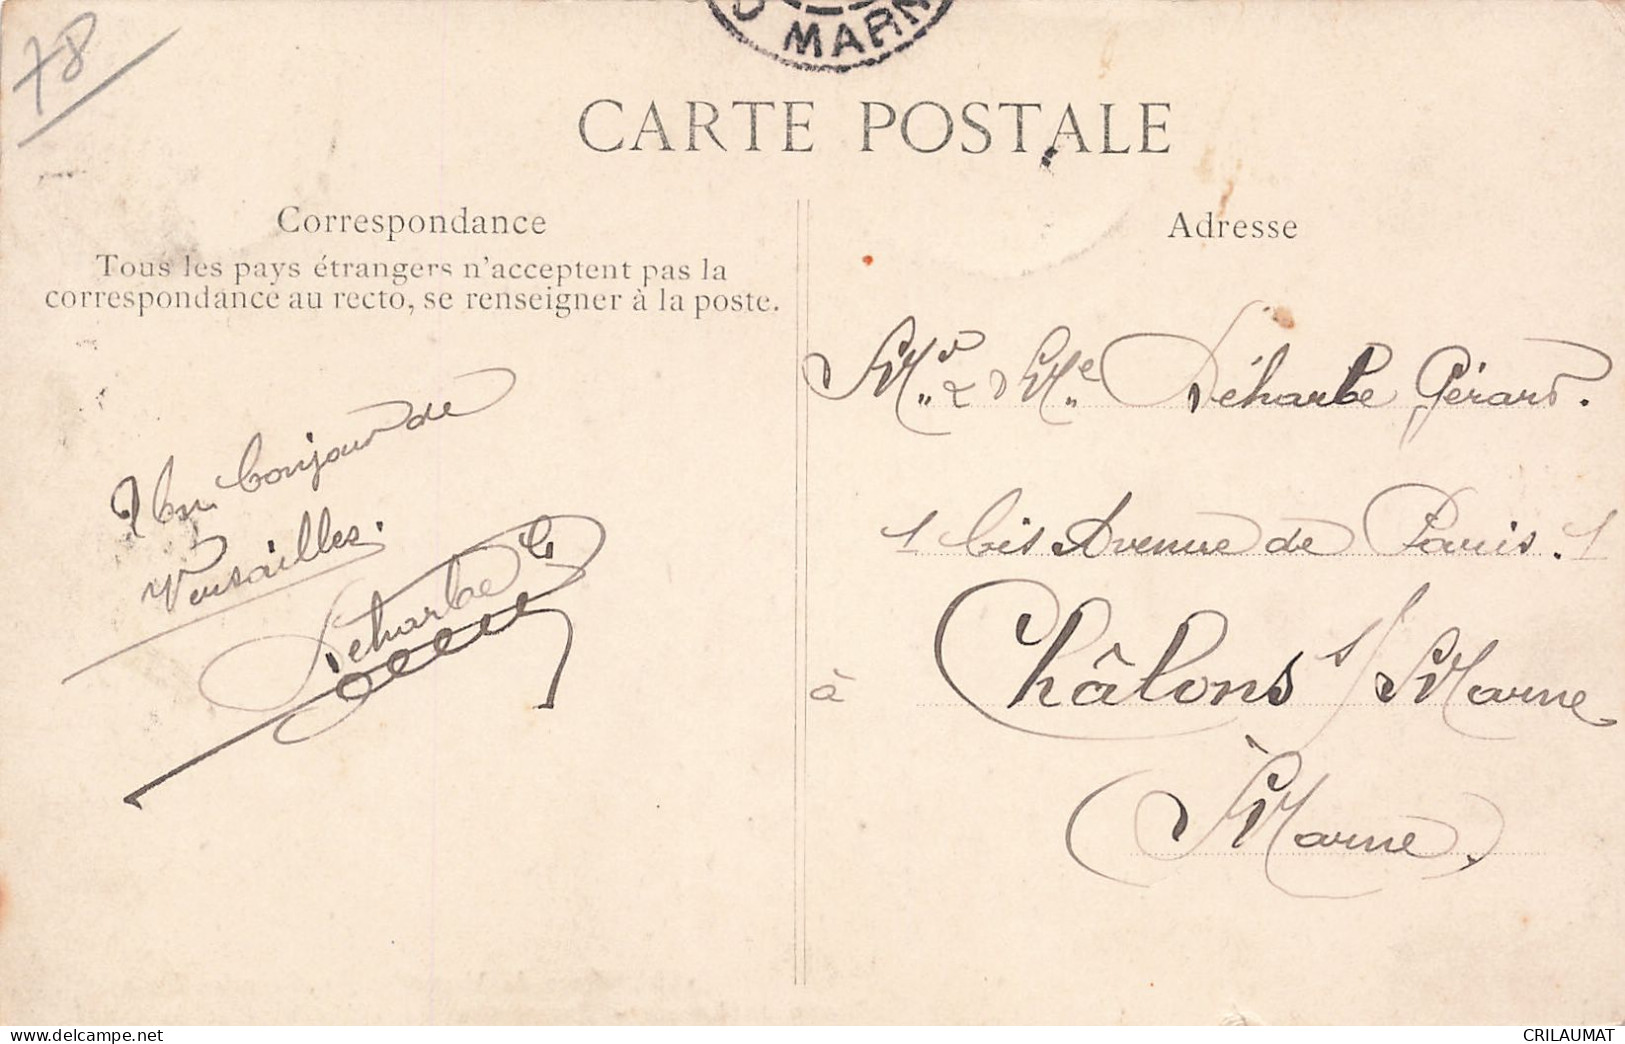 78
MARN
CARTE POSTALE
Correspondance
Tous les pays étrangers n'acceptent pas la
correspondance au recto, se renseigner à la poste.
Un bonjour de
Versailles.
Deharbe G
Adresse
Mr & Me Déharbe Gérard.
1 bis Avenue de Paris. 1
à Châlons s/ Marne
(Marne)
www.delcampe.net
CRILAUMAT